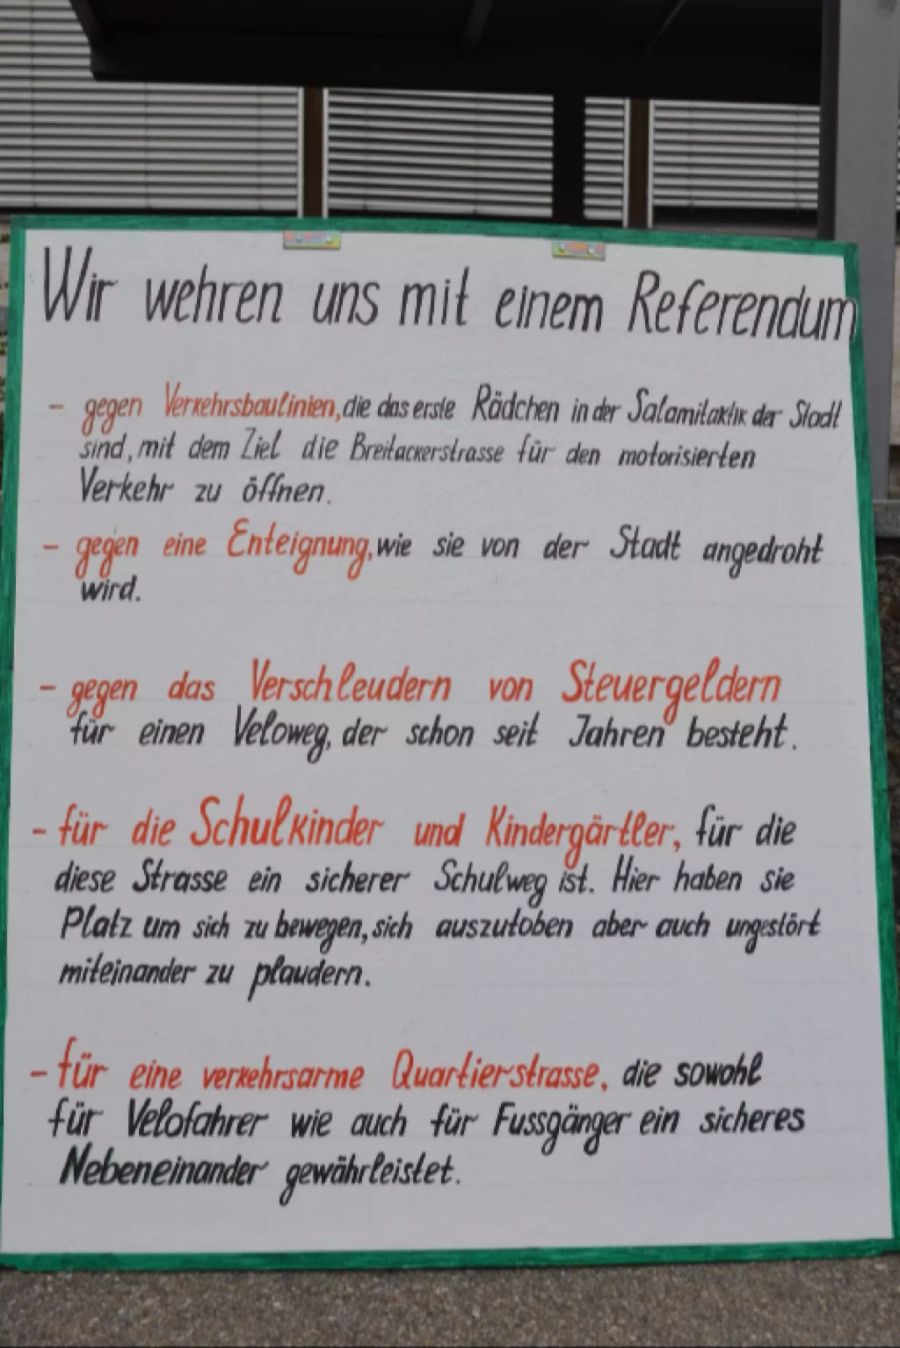 Wir wehren uns mit einem Referendum
- gegen Verkehrsbaulinien, die das erste Rädchen in der Salamitaktik der Stadt
sind, mit dem Ziel die Breitackerstrasse für den motorisierten
Verkehr zu öffnen.
- gegen eine Enteignung, wie sie von der Stadt angedroht
wird.
- gegen das Verschleudern von Steuergeldern
für einen Veloweg, der schon seit Jahren besteht.
- für die Schulkinder und Kindergärtler, für die
diese Strasse ein sicherer Schulweg ist. Hier haben sie
Platz um sich zu bewegen, sich auszutoben aber auch ungestört
miteinander zu plaudern.
- für eine verkehrsarme Quartierstrasse, die sowohl
für Velofahrer wie auch für Fussgänger ein sicheres
Nebeneinander gewährleistet.